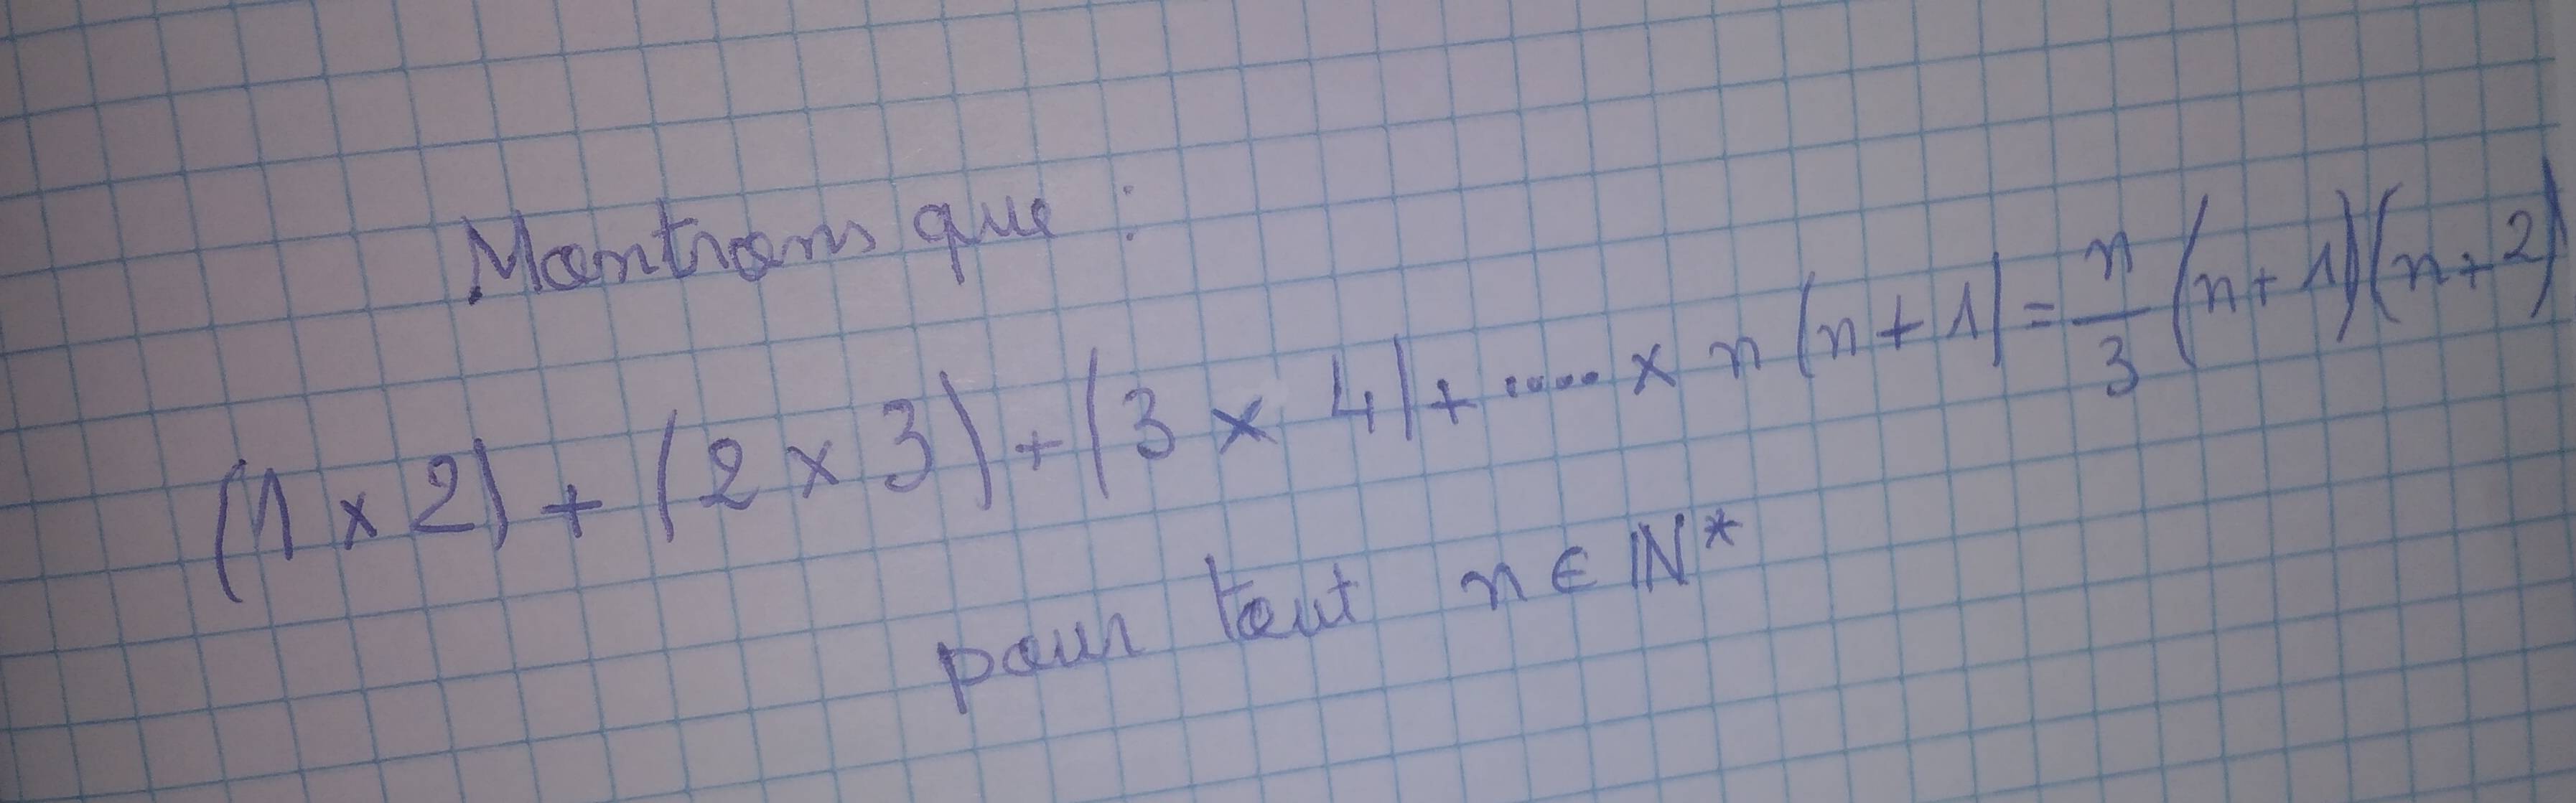 Montrons que :
(1 x 2) + (2 x 3) + (3 x 4) + ..... x n (n + 1) = n/3 (n + 1)(n + 2)
pour tout n ∈ ℕ*